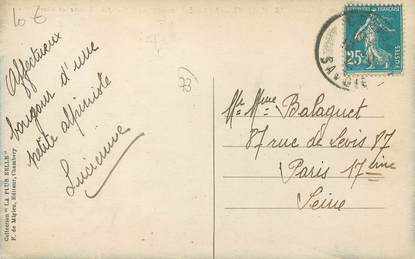 10 €
Affectueux
bonjour d'une
petite alpiniste
Lucienne
73
Collection "LA PLUS BELLE"
F. de Migieu, Editeur, Chambéry
RÉPUBLIQUE FRANÇAISE
25c
POSTES
SAVOIE
Mr Mme Balaguet
87 rue de Lévis 87
Paris 17ème
Seine